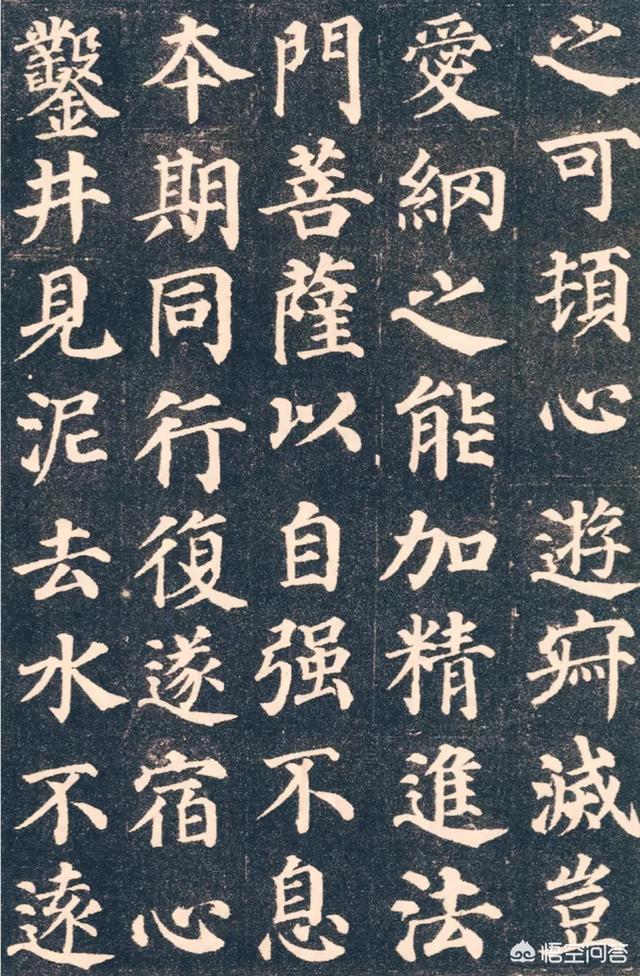 之可頓心遊寂滅豈
愛網之能加精進法
門菩薩以自强不息
本期同行復遂宿心
鑿井見泥去水不遠
悟空问答